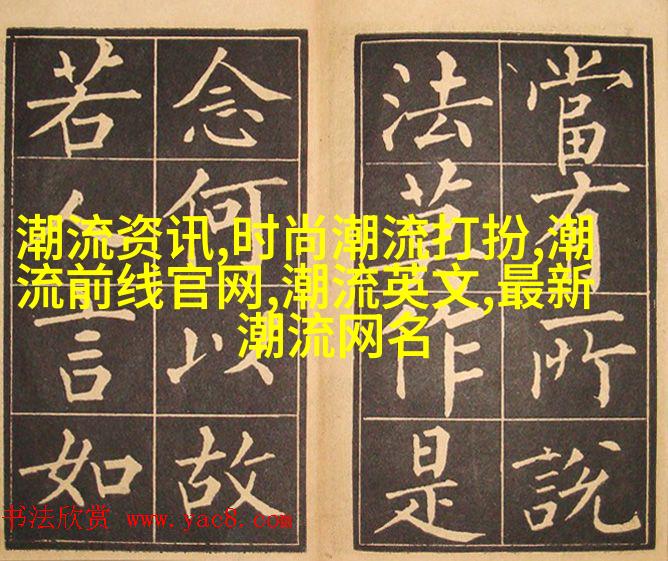 當有所說
法莫作是
念何以故
若人言如
潮流资讯,时尚潮流打扮,潮
流前线官网,潮流英文,最新
潮流网名
书法欣赏 www.yac8.com